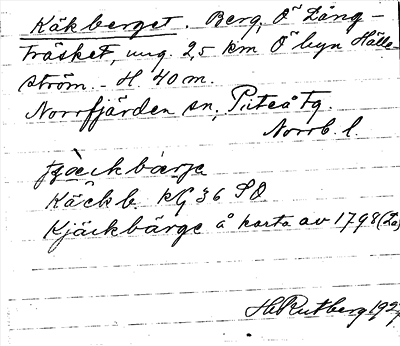 Käkberget. Berg, Ö Lång-
träsket, ung. 2,5 km Ö byn Hälle-
ström. - H. 40 m.
Norrfjärden sn, Piteå tg.
Norrb. l.
Käckb. KG 36 SO
Kjäckbärge å karta av 1798 (La)
H. Rutberg 1927